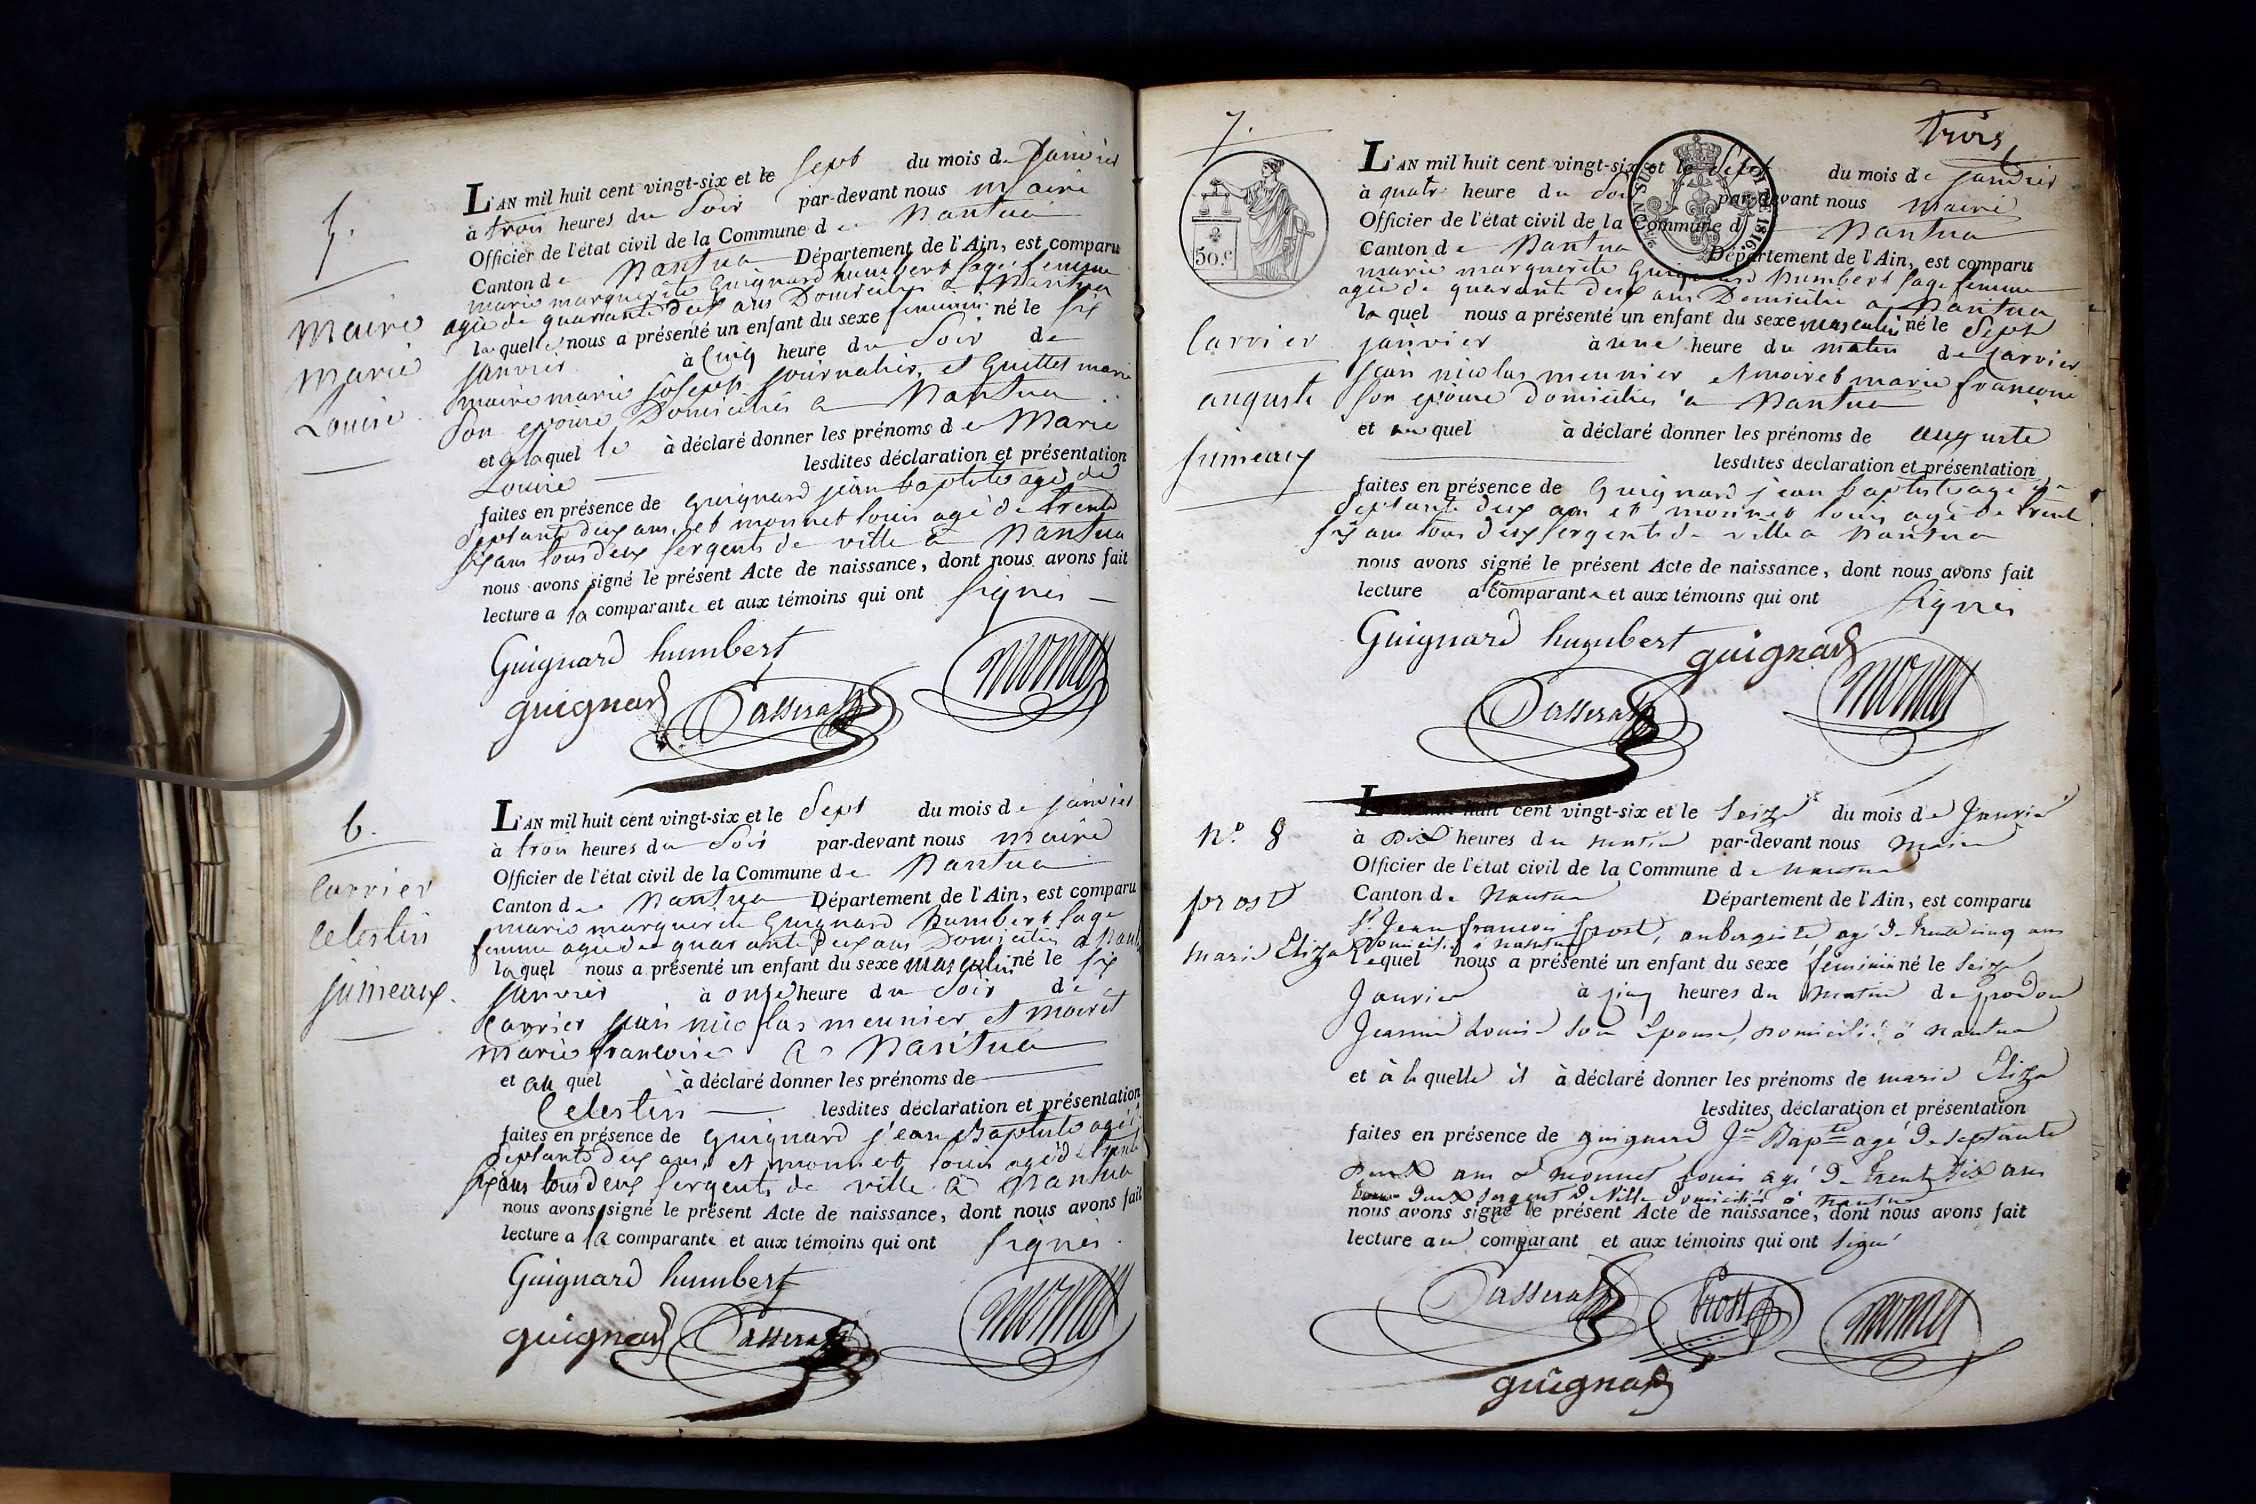 5.
Maire
Marie
Louise
L'AN mil huit cent vingt-six et le sept du mois de Janvier
à trois heures du Soir par-devant nous Maire
Officier de l'état civil de la Commune de Nantua
Canton de Nantua Département de l'Ain, est comparu
marie marguerite Guignard humbert sage femme
agée de quarante deux ans Domiciliée a Nantua
laquelle nous a présenté un enfant du sexe feminin né le six
Janvier à Cinq heure du Soir de
maire marie Joseph Journalier, et Guillet marie
Son epouse Domiciliés a Nantua
et a laquel le à déclaré donner les prénoms de Marie
Louise lesdites déclaration et présentation
faites en présence de Guignard jean baptiste agé de
septante deux ans, et monnet louis agé de trente
six ans tous deux sergents de ville a Nantua
nous avons signé le présent Acte de naissance, dont nous avons fait
lecture a la comparante et aux témoins qui ont signés
Guignard humbert
guignard Passerat monnet
6.
Carrier
Celestin
jumeaux.
L'AN mil huit cent vingt-six et le Sept du mois de janvier
à trois heures du Soir par-devant nous maire
Officier de l'état civil de la Commune de Nantua
Canton de Nantua Département de l'Ain, est comparu
marie marguerite Guignard humbert sage
femme agée de quarante Deux ans Domiciliée a
laquel nous a présenté un enfant du sexe masculin né le six
Janvier à onze heure du Soir de
Carrier jean nicolas meunier et moiret
marie francoise a Nantua
et au quel à déclaré donner les prénoms de
Celestin lesdites déclaration et présentation
faites en présence de Guignard jean Baptiste agé
septante deux ans, et monnet louis agé de trente
six ans tous deux sergents de ville a Nantua
nous avons signé le présent Acte de naissance, dont nous avons fait
lecture a la comparante et aux témoins qui ont signés.
Guignard humbert
guignard Passerat monnet
trois
7.
50.c
TIMBRE
LOI DE 1816.
Carrier
auguste
jumeaux
L'AN mil huit cent vingt-six et le Sept du mois de janvier
à quatre heure du Soir par-devant nous Maire
Officier de l'état civil de la Commune d Nantua
Canton de Nantua Département de l'Ain, est comparu
marie marguerite Guignard humbert sage femme
agée de quarante deux ans Domiciliée a Nantua
la quel nous a présenté un enfant du sexe masculin né le Sept
janvier à une heure du matin de Carrier
jean nicolas meunier et moiret marie francoise
son epouse domiciliés a Nantua
et au quel à déclaré donner les prénoms de auguste
lesdites déclaration et présentation
faites en présence de Guignard jean baptiste agé de
septante deux ans et monnet louis agé de trente
six ans tous deux sergents de ville a Nantua
nous avons signé le présent Acte de naissance, dont nous avons fait
lecture a comparante et aux témoins qui ont signés
Guignard humbert guignard
Passerat monnet
N.o 8
prost
marie Eliza
L'AN mil huit cent vingt-six et le Seize du mois de Janvier
à Dix heures du matin par-devant nous Maire
Officier de l'état civil de la Commune de Nantua
Canton de Nantua Département de l'Ain, est comparu
Sr. Jean francois prost, aubergiste agé de trente cinq ans
Domicilié à Nantua
Lequel nous a présenté un enfant du sexe féminin né le Seize
Janvier à cinq heures du matin de prodon
Jeanne Louise son Epouse, Domiciliés à Nantua
et à la quelle il à déclaré donner les prénoms de marie Eliza
lesdites déclaration et présentation
faites en présence de guignard Jn Bapte agé de septante
Deux ans & Monnet Louis agé de trente six ans
tous deux sergent de Ville Domiciliés à Nantua
nous avons signé le présent Acte de naissance, dont nous avons fait
lecture au comparant et aux témoins qui ont signé
Passerat Prost monnet
guignard